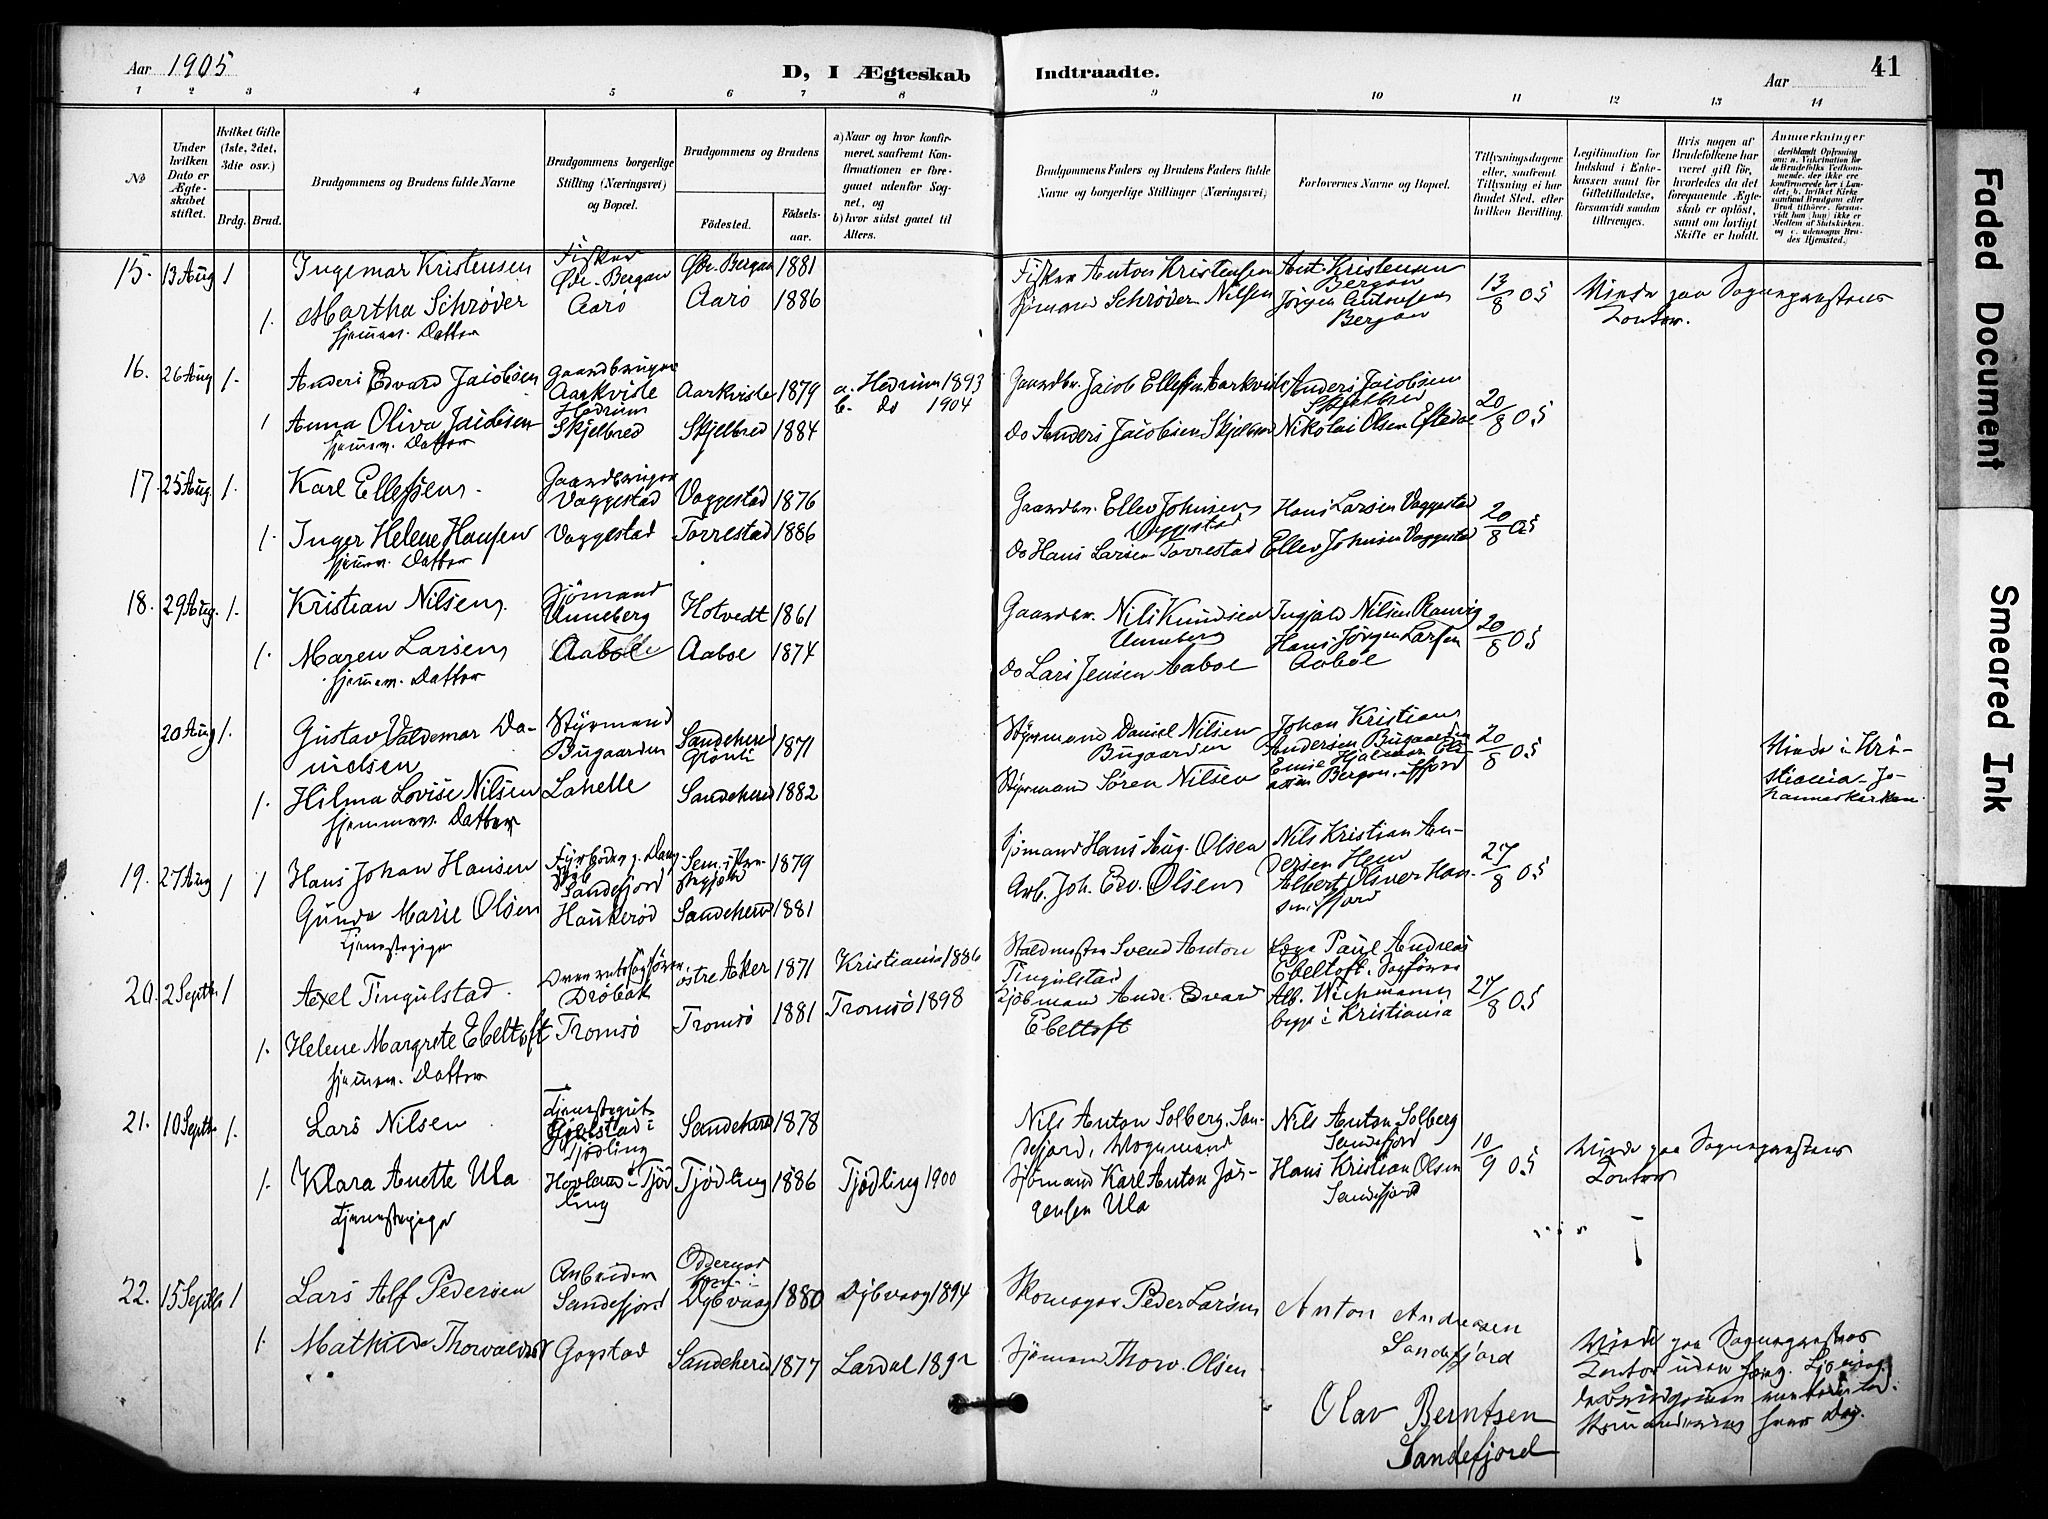 Aar 1905
D, I Ægteskab Indtraadte.
Aar
41
1 2 3 4 5 6 7 8 9 10 11 12 13 14
No
Under hvilken Dato er Ægteskabet stiftet.
Hvilket Gifte (1ste, 2det, 3die osv.)
Brdg. Brud.
Brudgommens og Brudens fulde Navne
Brudgommens borgerlige Stilling (Næringsvei) og Bopæl.
Brudgommens og Brudens
Födested. Födselsaar.
a) Naar og hvor konfirmeret, saafremt Konfirmationen er foregaaet udenfor Sognet, og
b) hvor sidst gaaet til Alters.
Brudgommens Faders og Brudens Faders fulde Navne og borgerlige Stillinger (Næringsvei)
Forlovernes Navne og Bopæl.
Tillysningsdagene eller, saafremt Tillysning ei har fundet Sted, efter hvilken Bevilling.
Legitimation for Indskud i Enkekassen samt for Giftetilladelse, forsaavidt saadan tiltrænges.
Hvis nogen af Brudefolkene har været gift för, hvorledes da det foregaaende Ægteskab er oplöst, samt om lovligt Skifte er holdt.
Anmerkninger
15. 13 Aug 1 Ingemar Kristensen Fisker Ø. Bergan Ø. Bergan 1881 Fisker Anton Kristensen Ant. Kristensen Bergan 13/8 05 Viede paa Sognepræstens Kontor.
1. Martha Schrøder Aarö Aarö 1886 Sjømand Schrøder Nilsen Jörgen Antonsen Bergan
hjemmev. Datter
16. 26 Aug 1. Anders Edvard Jacobsen Gaardbruger Aarkvisle Hedrum Aarkvisle 1879 a. Hedrum 1893 Gaardbr. Jacob Ellefsen Aarkvisle Anders Jacobsen Skjelbred 20/8 05
b. do 1904
1 Anna Oliva Jacobsen Skjelbred Skjelbred 1884 Do Anders Jacobsen Skjelbred Nikolai Olsen Eftedal
hjemmev. Datter
17. 25 Aug. 1. Karl Ellefsen. Gaardbruger Vaggestad Vaggestad 1876 Gaardbr. Ellev Johnsen Vaggestad Hans Larsen Vaggestad 20/8 05
1. Inger Helene Hansen Vaggestad Torrestad 1886 Do Hans Larsen Torrestad Ellev Johnsen Vaggestad
hjemmev. Datter
18. 29 Aug. 1. Kristian Nilsen. Sjömand Unneberg Hotvedt 1861 Gaardbr. Nils Knudsen Unneberg Ingjald Nilsen Ranvig 20/8 05
1. Maren Larsen Aaboe Aaboe 1874 Do Lars Jensen Aaboe Hans Jörgen Larsen Aaboe
hjemmev. Datter
20 Aug 1. Gustav Valdemar Danielsen Styrmand Bugaarden Sandeherred 1871 Styrmand Daniel Nilsen Bugaarden Johan Kristian Andersen Bugaarden 20/8 05 Viede i Kristiania Johanneskirken.
1. Hilma Lovise Nilsen Lahelle Sandeherred 1882 Styrmand Sören Nilsen
hjemmev. Datter
19. 27 Aug 1 1 Hans Johan Hansen Fyrböder Sandefjord 1879 Sjömand Hans Aug. Olsen Nils Kristian Andersen Hem 27/8 05
Gunda Marie Olsen Haukeröd Sandeherred 1881 Arb. Joh. Edv. Olsen Albert Oliver Hansen
Tjenestepige
20. 2 Septb. 1 Axel Tingulstad. Overretssagförer Dröbak östre Aker 1871 Kristiania 1886 Staldmester Svend Anton Tingulstad Læge Paul Andreas Ebeltoft, Sagförer 27/8 05
1. Helene Margrete Ebeltoft Tromsö Tromsö 1881 Tromsö 1898 Kjöbmand Andr. Edvard Ebeltoft Alb. Wichmann begge i Kristiania
hjemmev. Datter
21. 10 Septb. 1. Lars Nilsen Tjenestegut Tjödling Sandeherred 1878 Nils Anton Solberg, Sandefjord, Vognmand Nils Anton Solberg Sandefjord 10/9 05 Viede paa Sognepræstens Kontor
1. Klara Anette Ula Hovland i Tjödling Tjödling 1886 Tjödling 1900 Sjömand Karl Anton Jörgensen Ula Hans Kristian Olsen Sandefjord
Tjenestepige
22. 15 Septb 1 Lars Alf Pedersen Arbeider Sandefjord Oddernes Dybvaag 1880 Dybvaag 1894 Skomager Peder Larsen Anton Andresen Sandefjord Viede paa Sognepræstens Kontor uden
1. Mathilde Thorvaldsen Gogstad Sandeherred 1877 Lardal 1892 Sjömand Thorv. Olsen Olav Berntsen Sandefjord
Faded Document
Smeared Ink